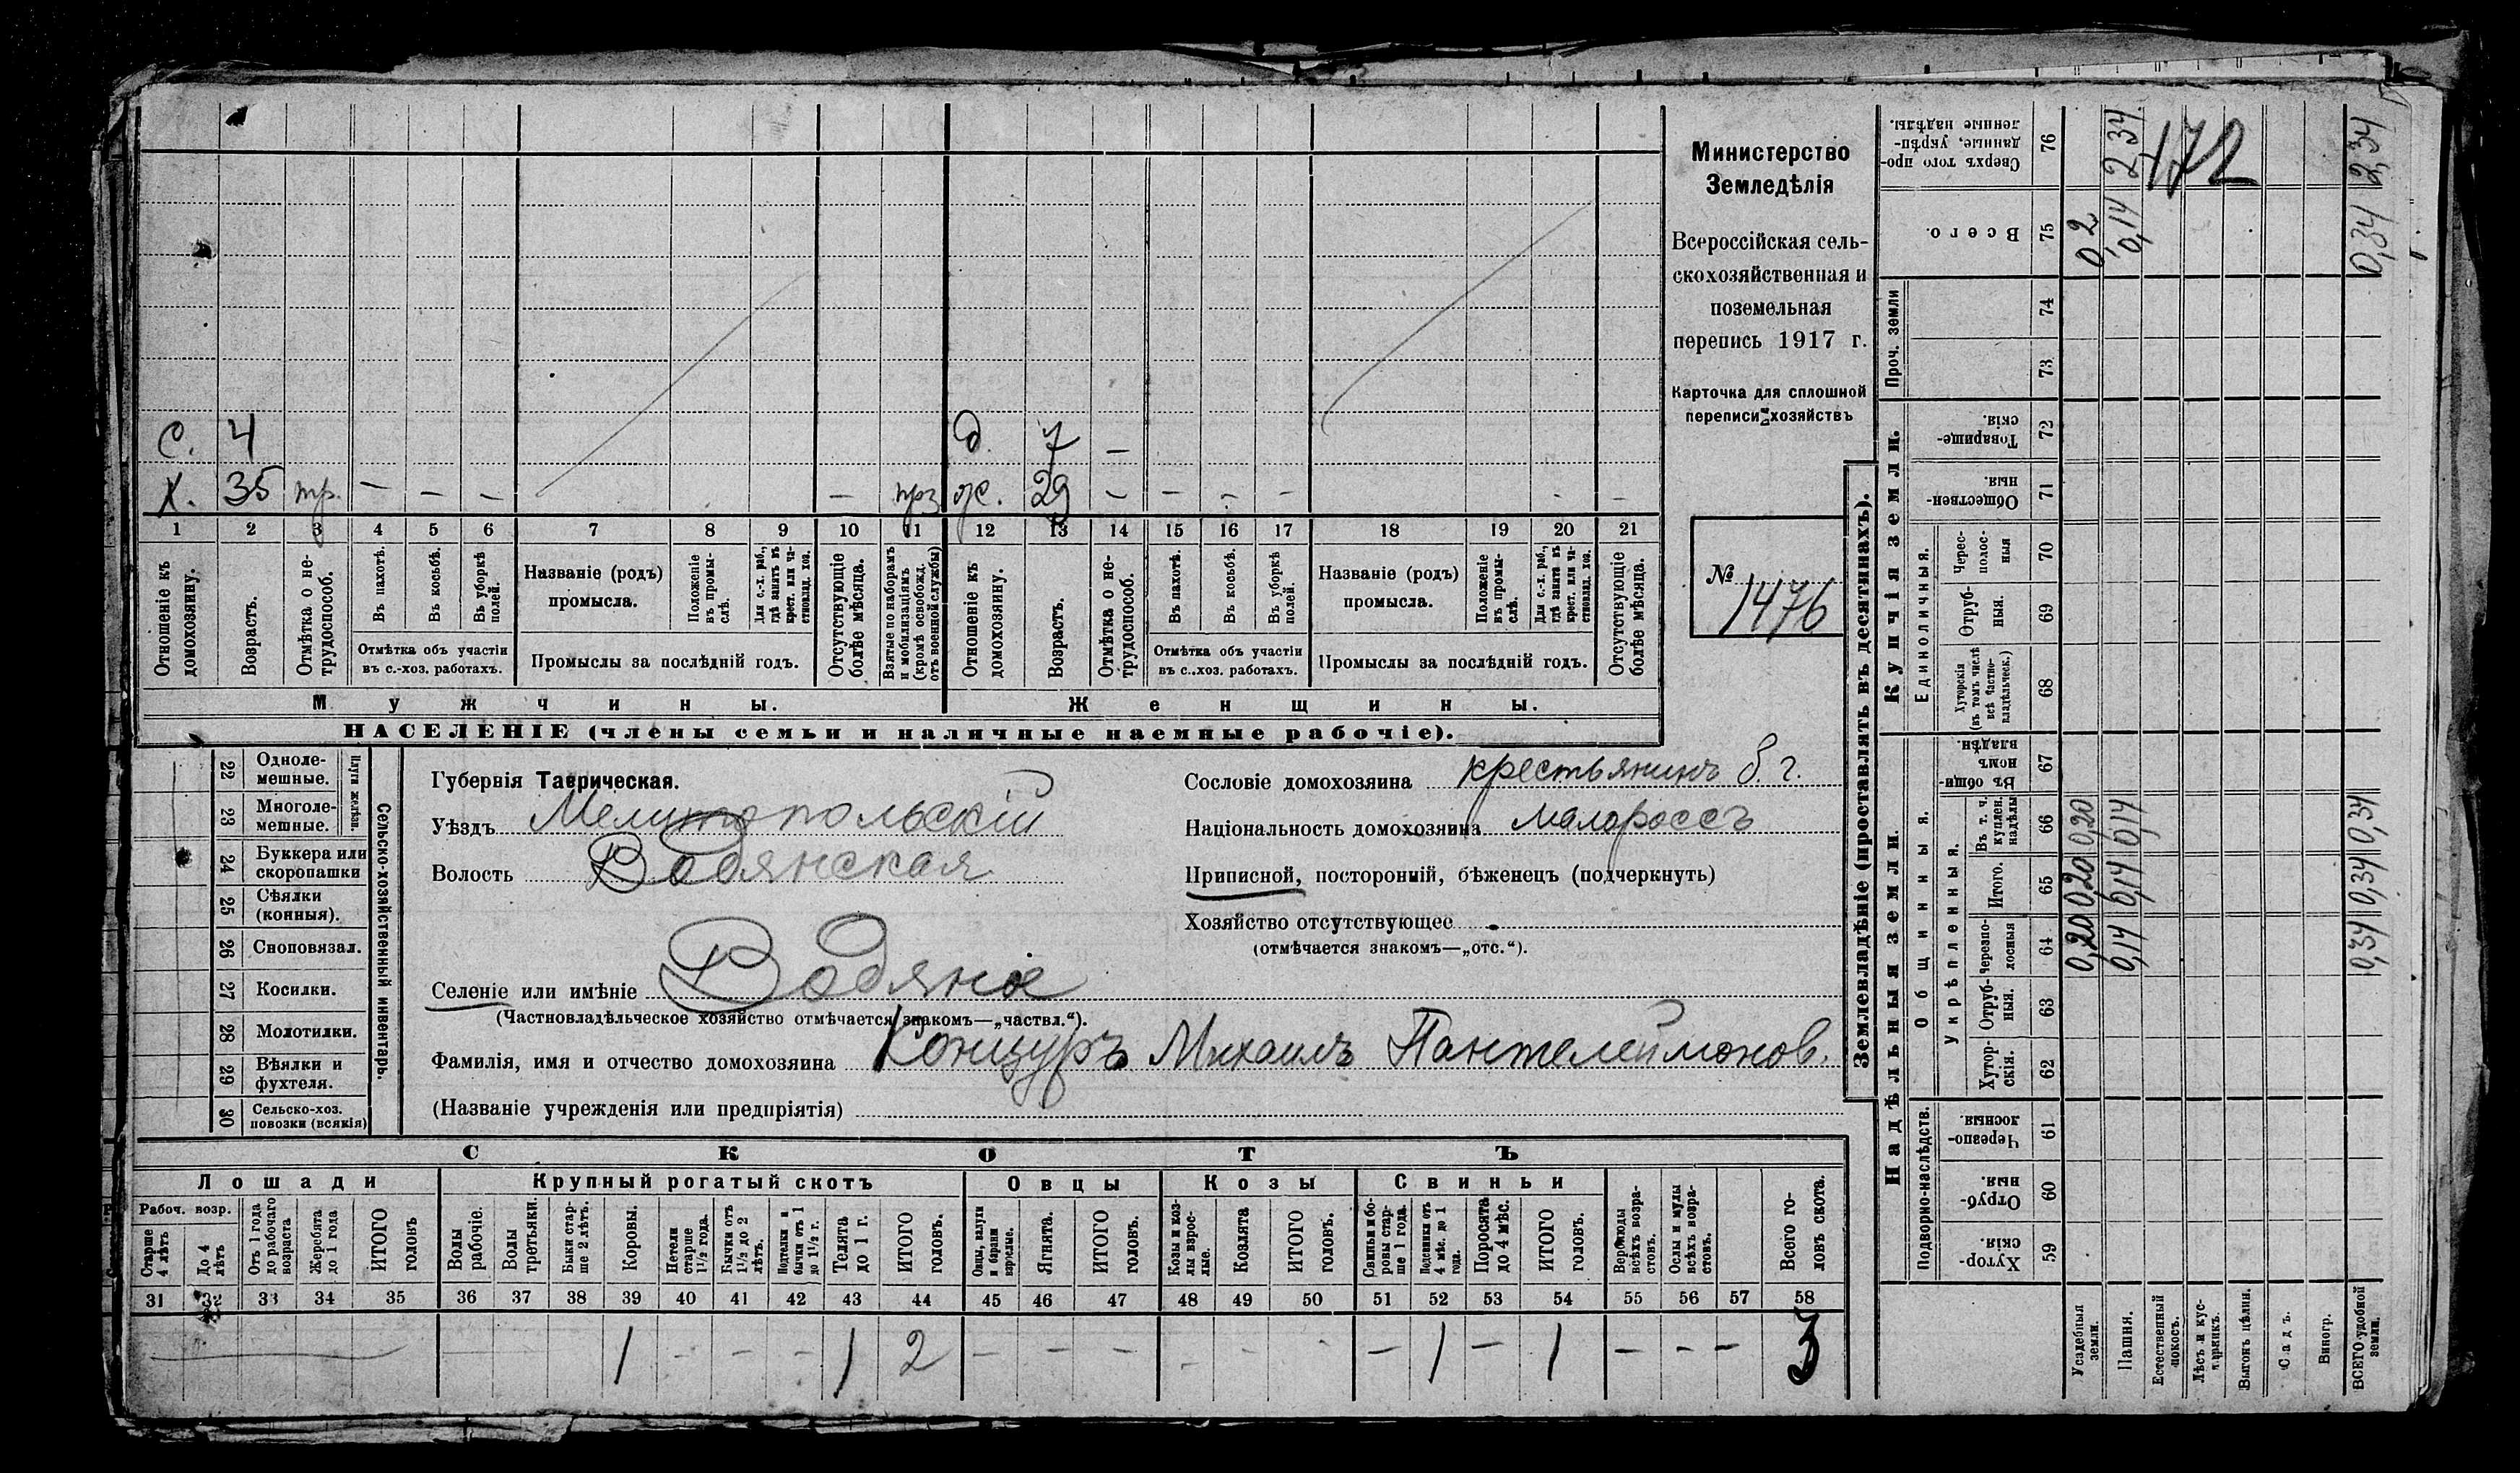 С. 4 д. 7 –
Х. 35 тр. – – – – прз ж. 29 – – – – – –
1 2 3 4 5 6 7 8 9 10 11 12 13 14 15 16 17 18 19 20 21
Отношеніе къ домохозяину.
Возрастъ.
Отмѣтка о нетрудоспособ.
Въ пахотѣ.
Въ косьбѣ.
Въ уборкѣ полей.
Отмѣтка объ участіи
въ с.-хоз. работахъ.
Названіе (родъ)
промысла.
Положеніе въ промыслѣ.
Для с.-х. раб., гдѣ занятъ въ крест. или частновлад. хоз.
Промыслы за послѣдній годъ.
Отсутствующіе болѣе мѣсяца.
Взятые по наборамъ и мобилизаціямъ (кромѣ освобожд. отъ военной службы)
Отношеніе къ домохозяину.
Возрастъ.
Отмѣтка о нетрудоспособ.
Въ пахотѣ.
Въ косьбѣ.
Въ уборкѣ полей.
Отмѣтка объ участіи
въ с.-хоз. работахъ.
Названіе (родъ)
промысла.
Положеніе въ промыслѣ.
Для с.-х. раб., гдѣ занята въ крест. или частновлад. хоз.
Промыслы за послѣдній годъ.
Отсутствующіе болѣе мѣсяца.
Мужчины. Женщины.
НАСЕЛЕНІЕ (члены семьи и наличные наемные рабочіе).
Министерство
Земледѣлія
Всероссійская сель-
скохозяйственная и
поземельная
перепись 1917 г.
Карточка для сплошной
переписи хозяйствъ
№ 1476
22 Одноле-
мешные.
23 Многоле-
мешные.
Плуги желѣзн.
24 Буккера или
скоропашки
25 Сѣялки
(конныя).
26 Сноповязал.
27 Косилки.
28 Молотилки.
29 Вѣялки и
фухтеля.
30 Сельско-хоз.
повозки (всякія)
Сельско-хозяйственный инвентарь.
Губернія Таврическая.
Уѣздъ Мелитопольскій
Волость Водянская
Селеніе или имѣніе Водяна
(Частновладѣльческое хозяйство отмѣчается знакомъ—„частвл.“).
Фамилія, имя и отчество домохозяина Концуръ Михаилъ Пантелеймонов.
(Названіе учрежденія или предпріятія)
Сословіе домохозяина крестьянинъ б. г.
Національность домохозяина малороссъ
Приписной, посторонній, бѣженецъ (подчеркнуть)
Хозяйство отсутствующее
(отмѣчается знакомъ—„отс.“).
СКОТЪ
Лошади Крупный рогатый скотъ Овцы Козы Свиньи
Рабоч. возр.
Старше 4 лѣтъ
До 4 лѣтъ
Отъ 1 года до рабочаго возраста
Жеребята до 1 года
ИТОГО головъ
Волы рабочіе.
Волы третьяки.
Быки старше 2 лѣтъ.
Коровы.
Нетели старше 1½ года.
Бычки отъ 1½ до 2 лѣтъ.
Подтелки и бычки отъ 1 до 1½ г.
Телята до 1 г.
ИТОГО головъ.
Овцы, валухи и бараны взрослые.
Ягнята.
ИТОГО головъ.
Козы и козлы взрослые.
Козлята
ИТОГО головъ.
Свиньи и боровы старше 1 года.
Подсвинки отъ 4 мѣс. до 1 года.
Поросята до 4 мѣс.
ИТОГО головъ.
Верблюды всѣхъ возрастовъ.
Ослы и мулы всѣхъ возрастовъ.
Всего головъ скота.
31 32 33 34 35 36 37 38 39 40 41 42 43 44 45 46 47 48 49 50 51 52 53 54 55 56 57 58
1 – – – 1 2 – – – – – – – 1 – 1 – – – 3
Землевладѣніе (проставлять въ десятинахъ).
Надѣльныя земли. Купчія земли. Проч. земли
Подворно-наслѣдств. Общинныя. Единоличныя.
Укрѣпленныя.
Хуторскія. 59
Отрубныя 60
Черезполосныя. 61
Хуторскія. 62
Отрубныя. 63
Черезполосныя 64
Итого. 65
Въ т. ч. куплен. надѣлы 66
Въ общиномъ владѣн. 67
Хуторскія (въ томъ числѣ всѣ частновладѣльческ.) 68
Отрубныя. 69
Чересполосныя 70
Общественныя. 71
Товарищескія 72
73
74
Всего. 75
Сверхъ того проданные, укрѣпленные надѣлы. 76
Усадебныя земли. 0,20 0,20 0,20 0,2
Пашня. 0,14 0,14 0,14 0,14 2 34
Естественный покосъ.
Лѣсъ и кустарникъ.
Выгонъ цѣлин.
Садъ.
Виногр.
ВСЕГО удобной земли. 0,34 0,34 0,34 0,34 2,34
172